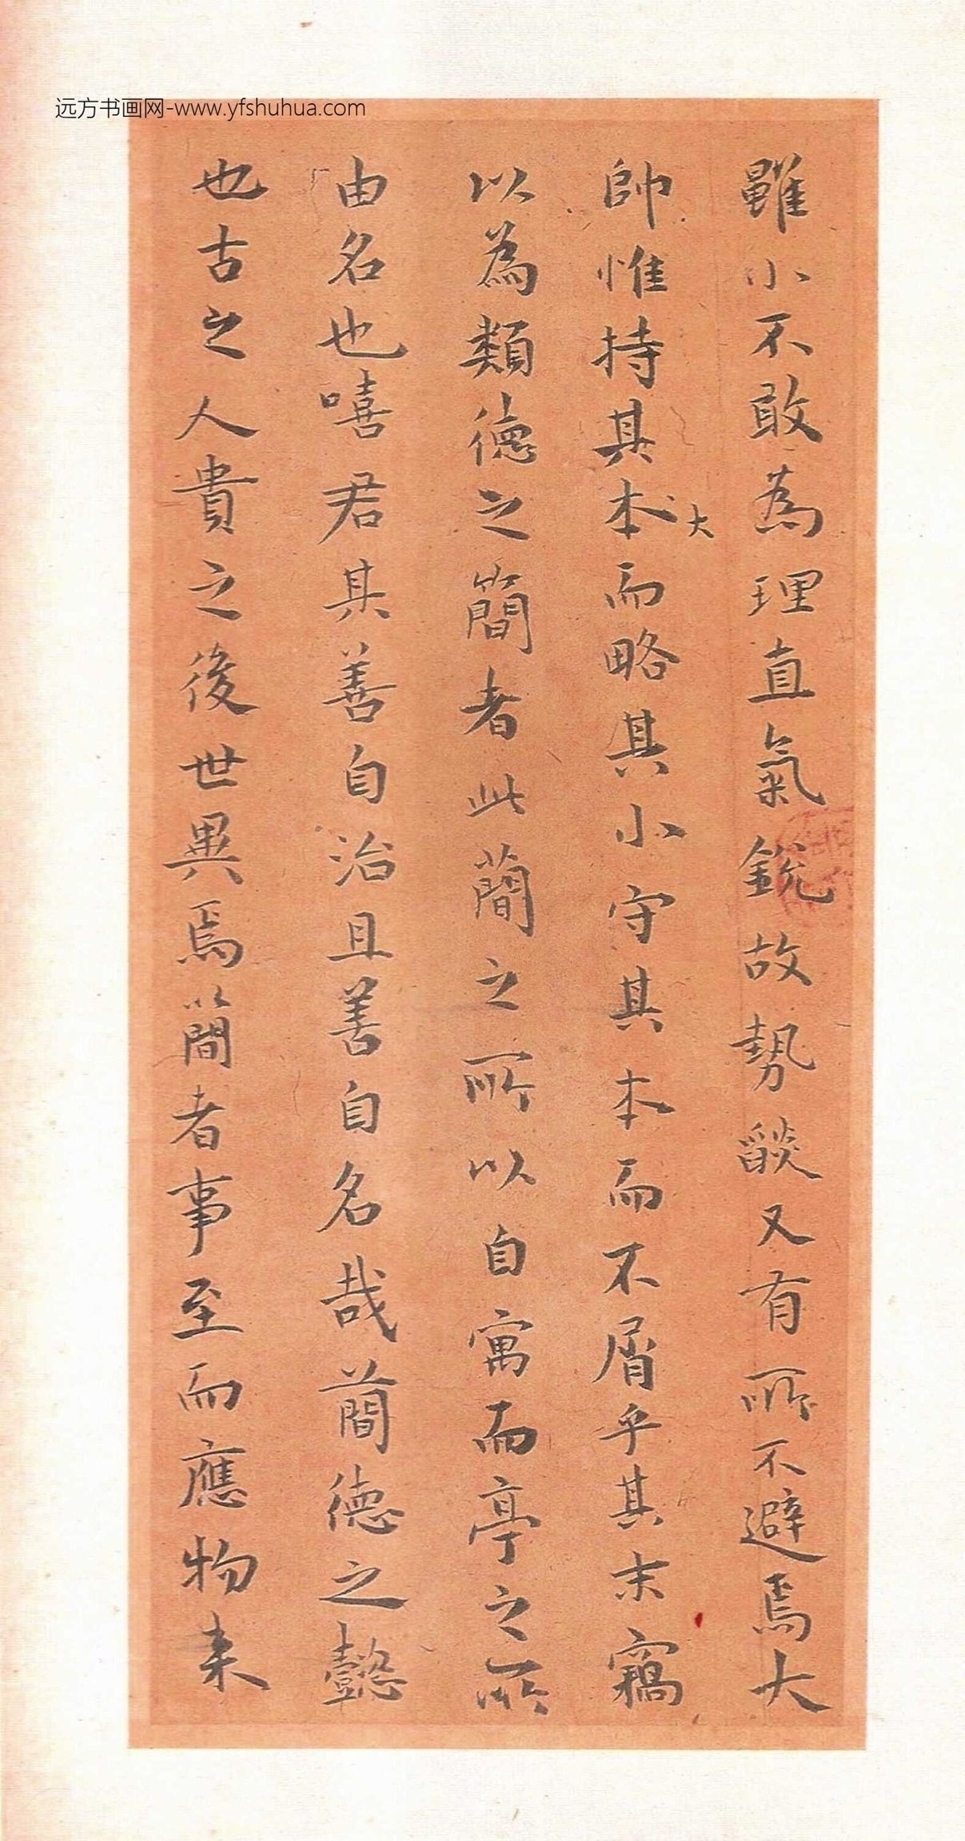 远方书画网-www.yfshuhua.com
雖小不敢為理直氣銳故勢燄又有所不避焉大
帥惟持其本大而略其小守其本而不屑乎其末竊
以為類德之簡者此簡之所以自寓而亭之所
由名也嘻君其善自治且善自名哉簡德之懿
也古之人貴之後世異焉簡者事至而應物来